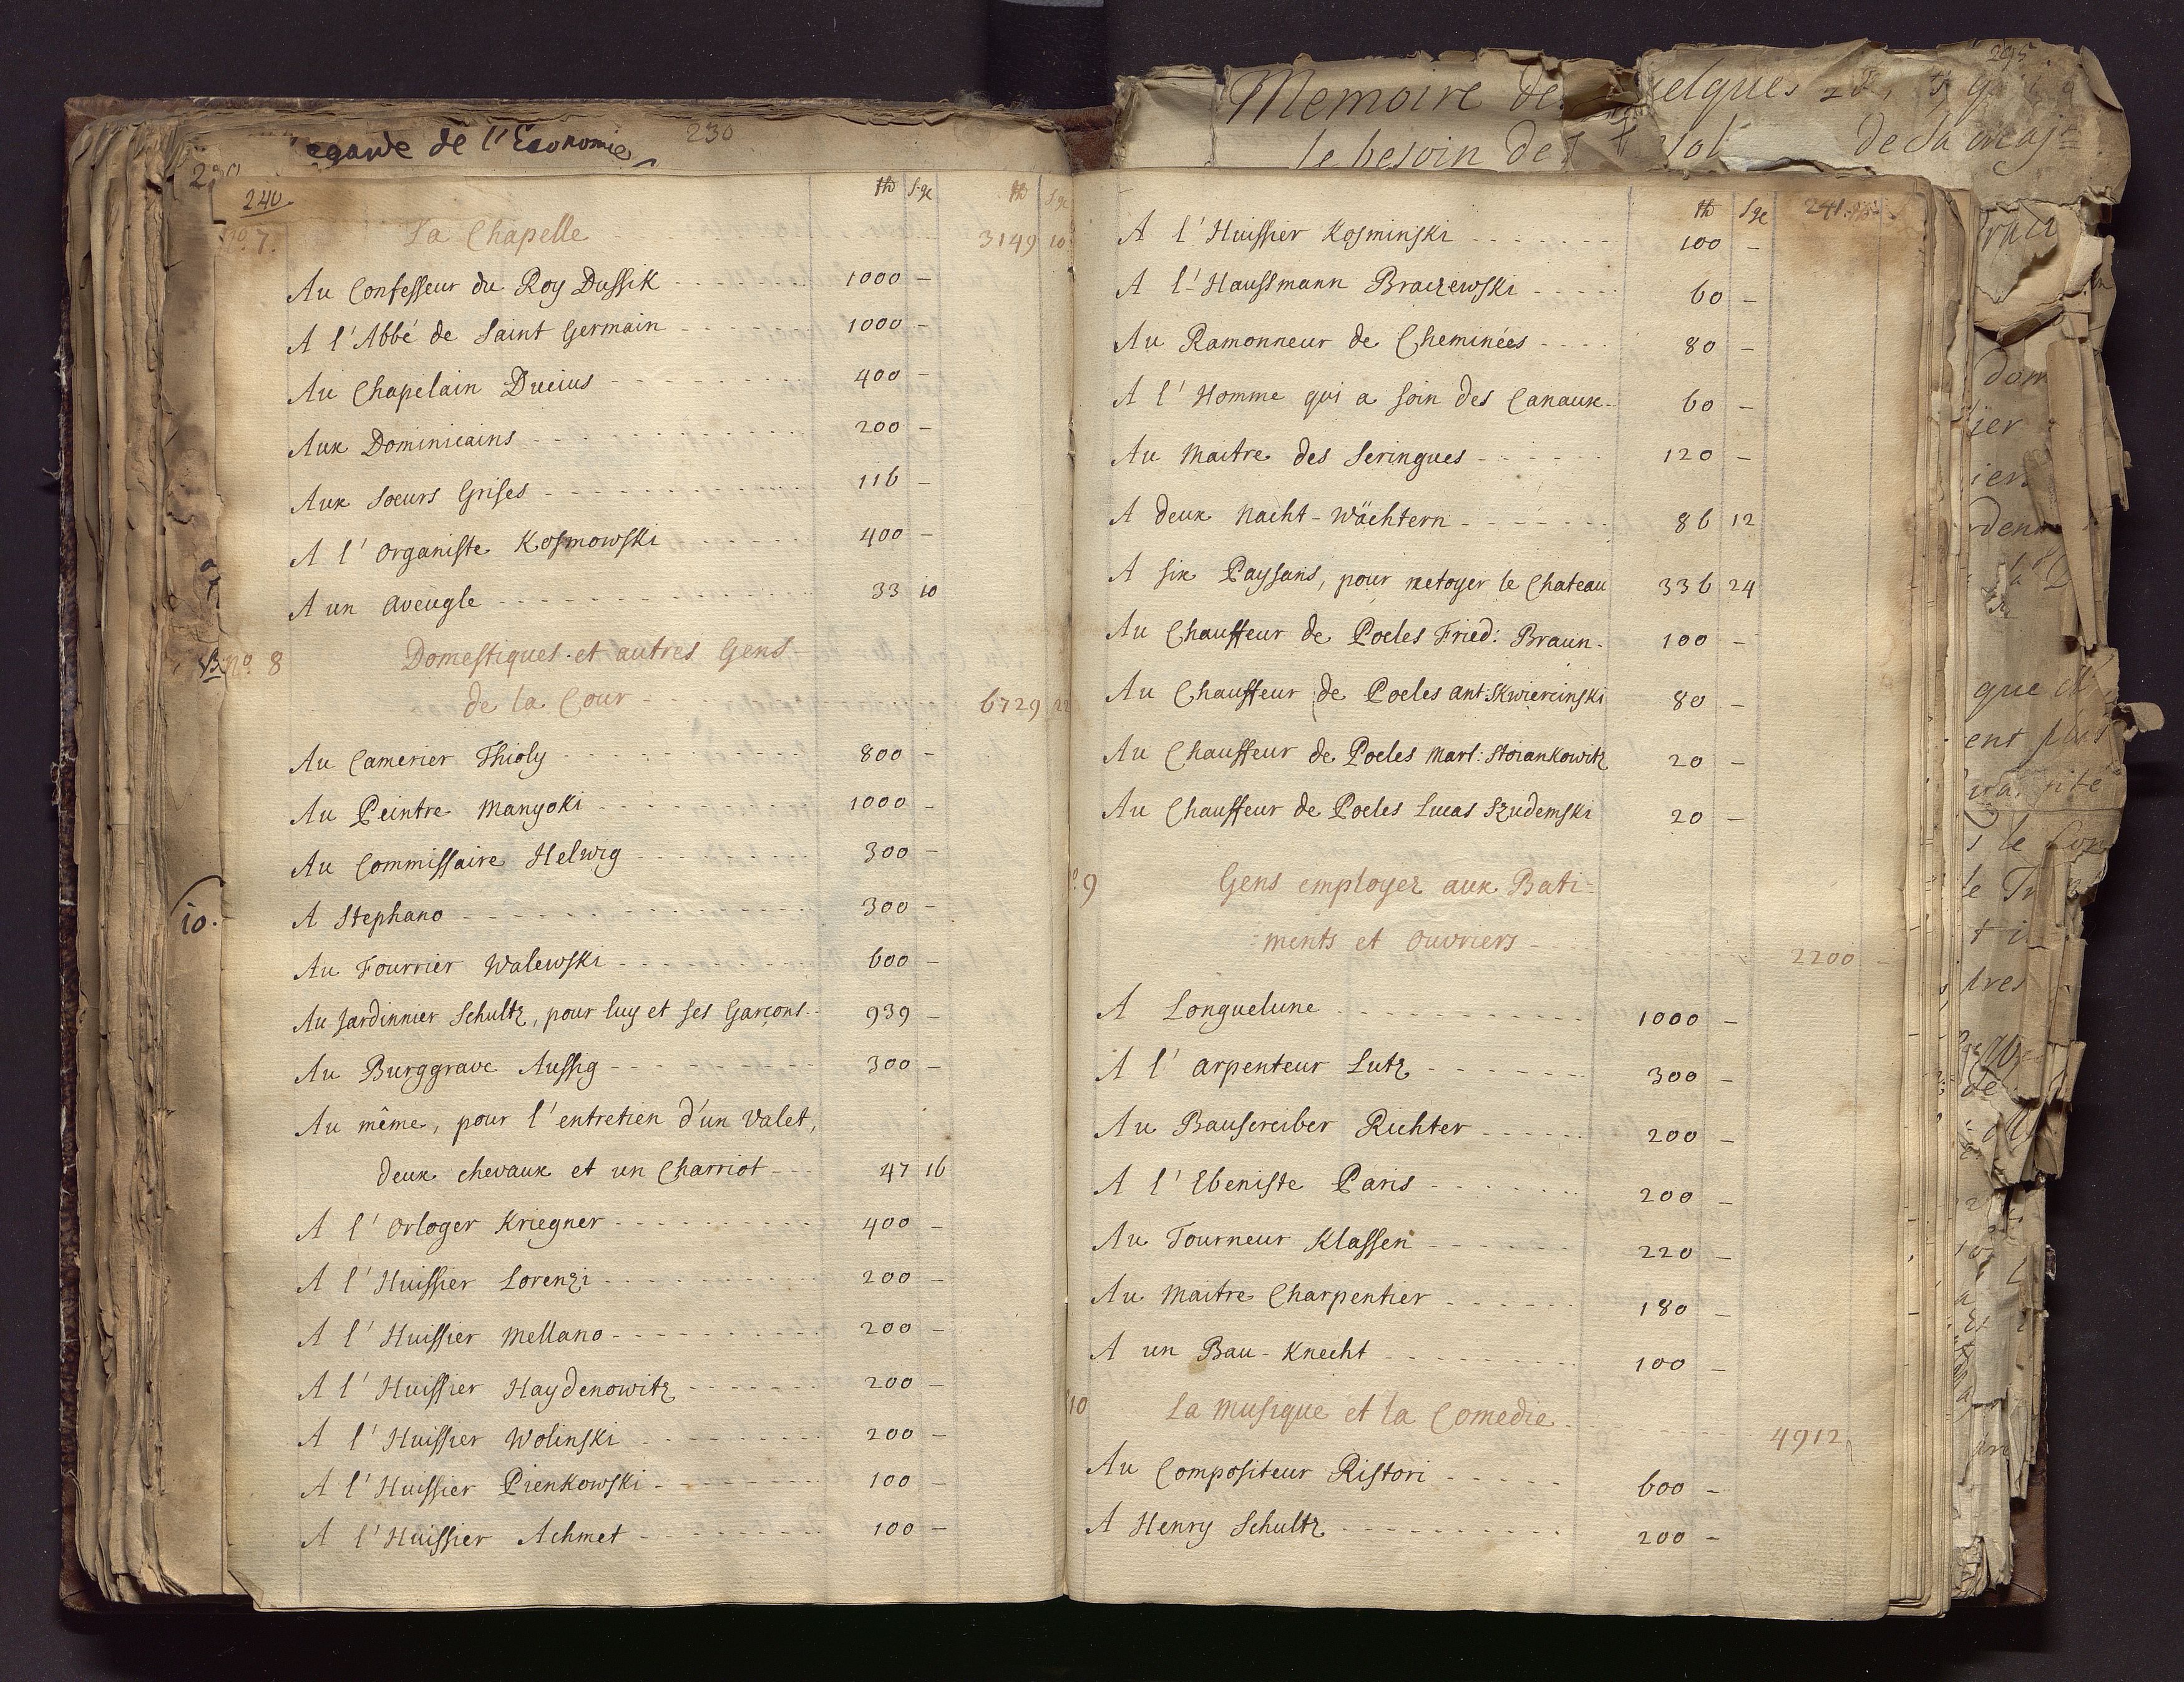 egarde de l'Economie
230
240.
th sge th sge
no. 7. La Chapelle 3149 10
Au Confesseur du Roy Dussik 1000 –
A l'Abbé de Saint Germain 1000 –
Au Chapelain Ducius 400 –
Aux Dominicains 200 –
Aux Soeurs Grises 116 –
A l'Organiste Kosmowski 400 –
A un Aveugle 33 10
no. 8 Domestiques et autres Gens
de la Cour 6729 22
Au Camerier Thioly 800 –
Au Peintre Manyoki 1000 –
Au Commissaire Helwig 300 –
A Stephano 300 –
10.
Au Fourrier Walewski 600 –
Au Jardinnier Schultz, pour luy et ses Garçons 939 –
Au Burggrave Aussig 300 –
Au même, pour l'entretien d'un Valet,
deux chevaux et un Charriot 47 16
A l'Orloger Kriegner 400 –
A l'Huissier Lorenzi 200 –
A l'Huissier Mellano 200 –
A l'Huissier Haydenowitz 200 –
A l'Huissier Wolinski 200 –
A l'Huissier Pienkowski 100 –
A l'Huissier Achmet 100 –
295
Memoire de quelques
le besoin de de Sa Maj
th sge 241.
A l'Huissier Kosminski 100 –
A l'Haussmann Braczewski 60 –
Au Ramonneur de Cheminées 80 –
A l'Homme qui a soin des Canaux 60 –
Au Maitre des Seringues 120 –
A deux Nacht-Wächtern 86 12
A six Paysans, pour netoyer le Chateau 336 24
Au Chauffeur de Poeles Fried: Braun 100 –
Au Chauffeur de Poeles Ant: Skwiercinski 80 –
Au Chauffeur de Poeles Mart: Stoiankowitz 20 –
Au Chauffeur de Poeles Lucas Szudemski 20 –
9 Gens employez aux Bati=
=ments et Ouvriers 2200 –
A Longuelune 1000 –
A l'Arpenteur Lutz 300 –
Au Bauscreiber Richter 200 –
A l'Ebeniste Paris 200 –
Au Tourneur Klassen 220 –
Au Maitre Charpentier 180 –
A un Bau-Knecht 100 –
10 La Musique et la Comedie 4912
Au Compositeur Ristori 600 –
A Henry Schultz 200 –